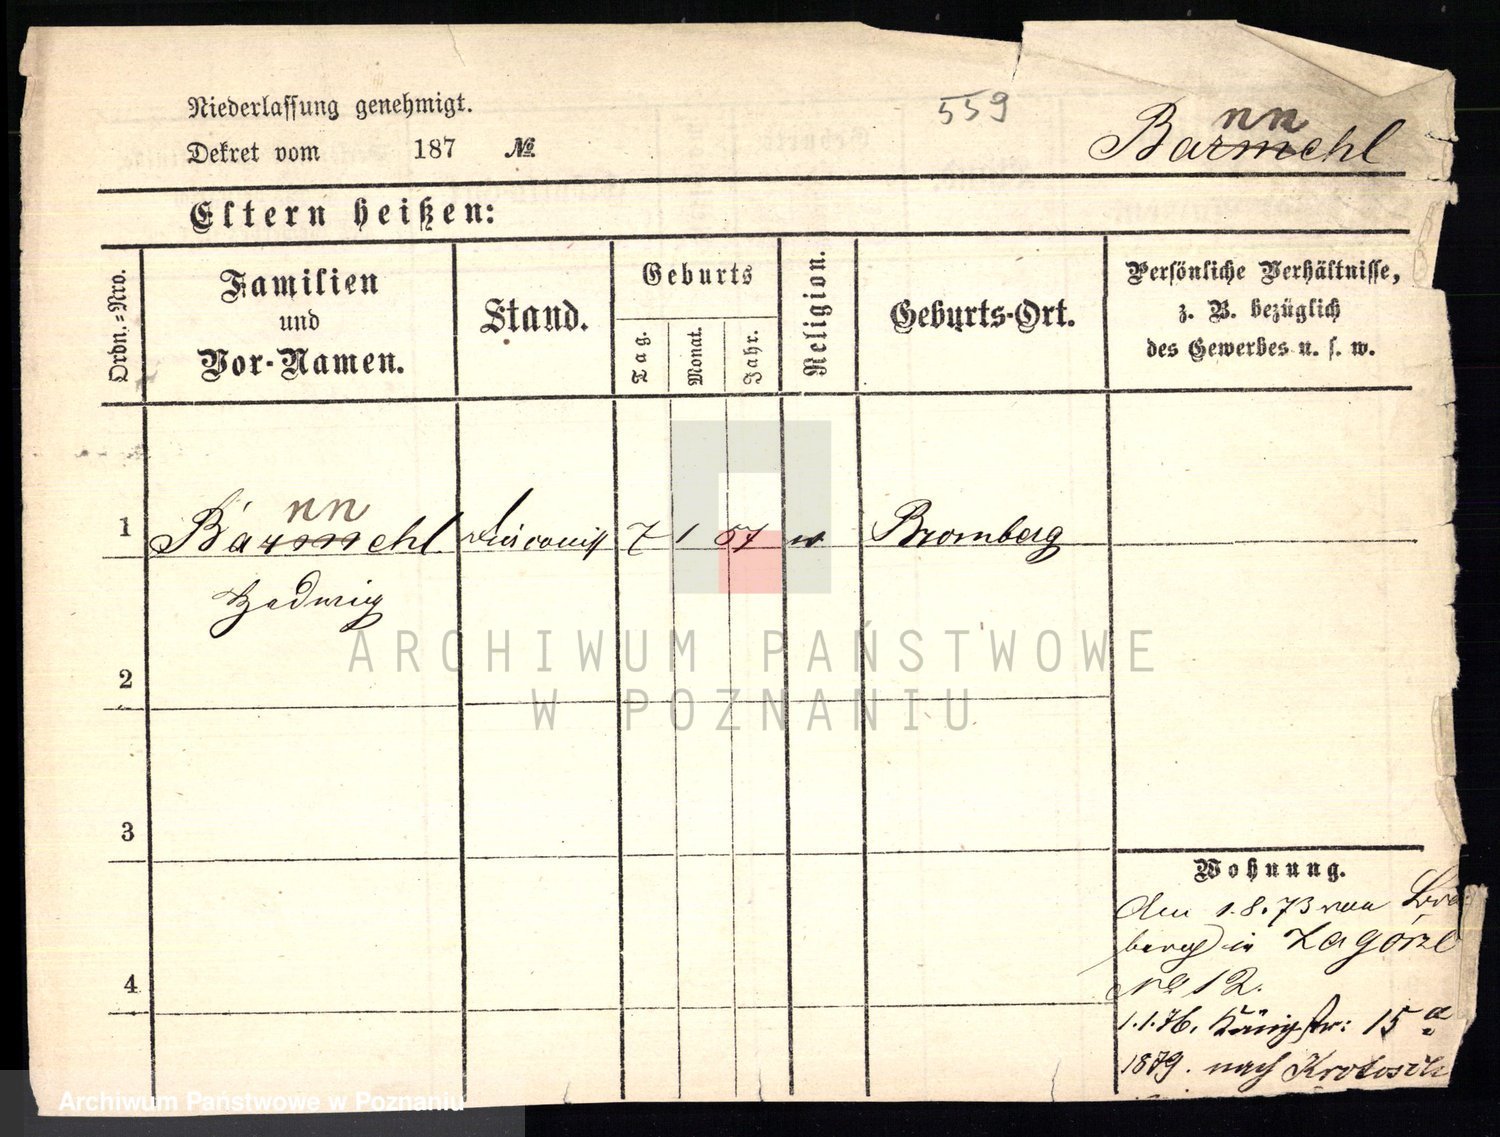 Niederlassung genehmigt.
559
nn
Dekret vom 187 №
Barmehl
Eltern heißen:
Ordn.-Nro.
Familien
und
Vor-Namen.
Stand.
Geburts
Tag.
Monat.
Jahr.
Religion.
Geburts-Ort.
Persönliche Verhältnisse,
z. B. bezüglich
des Gewerbes u. s. w.
nn
1 Barmehl 7 1 57 Bromberg
Hedwig
2
3
4
Wohnung.
Am 1.8.73 von Bro
berg in Zagórze
No 12.
1.1.76. Königstr: 15 a
1879. nach Krotosch
ARCHIWUM PAŃSTWOWE
W POZNANIU
Archiwum Państwowe w Poznaniu